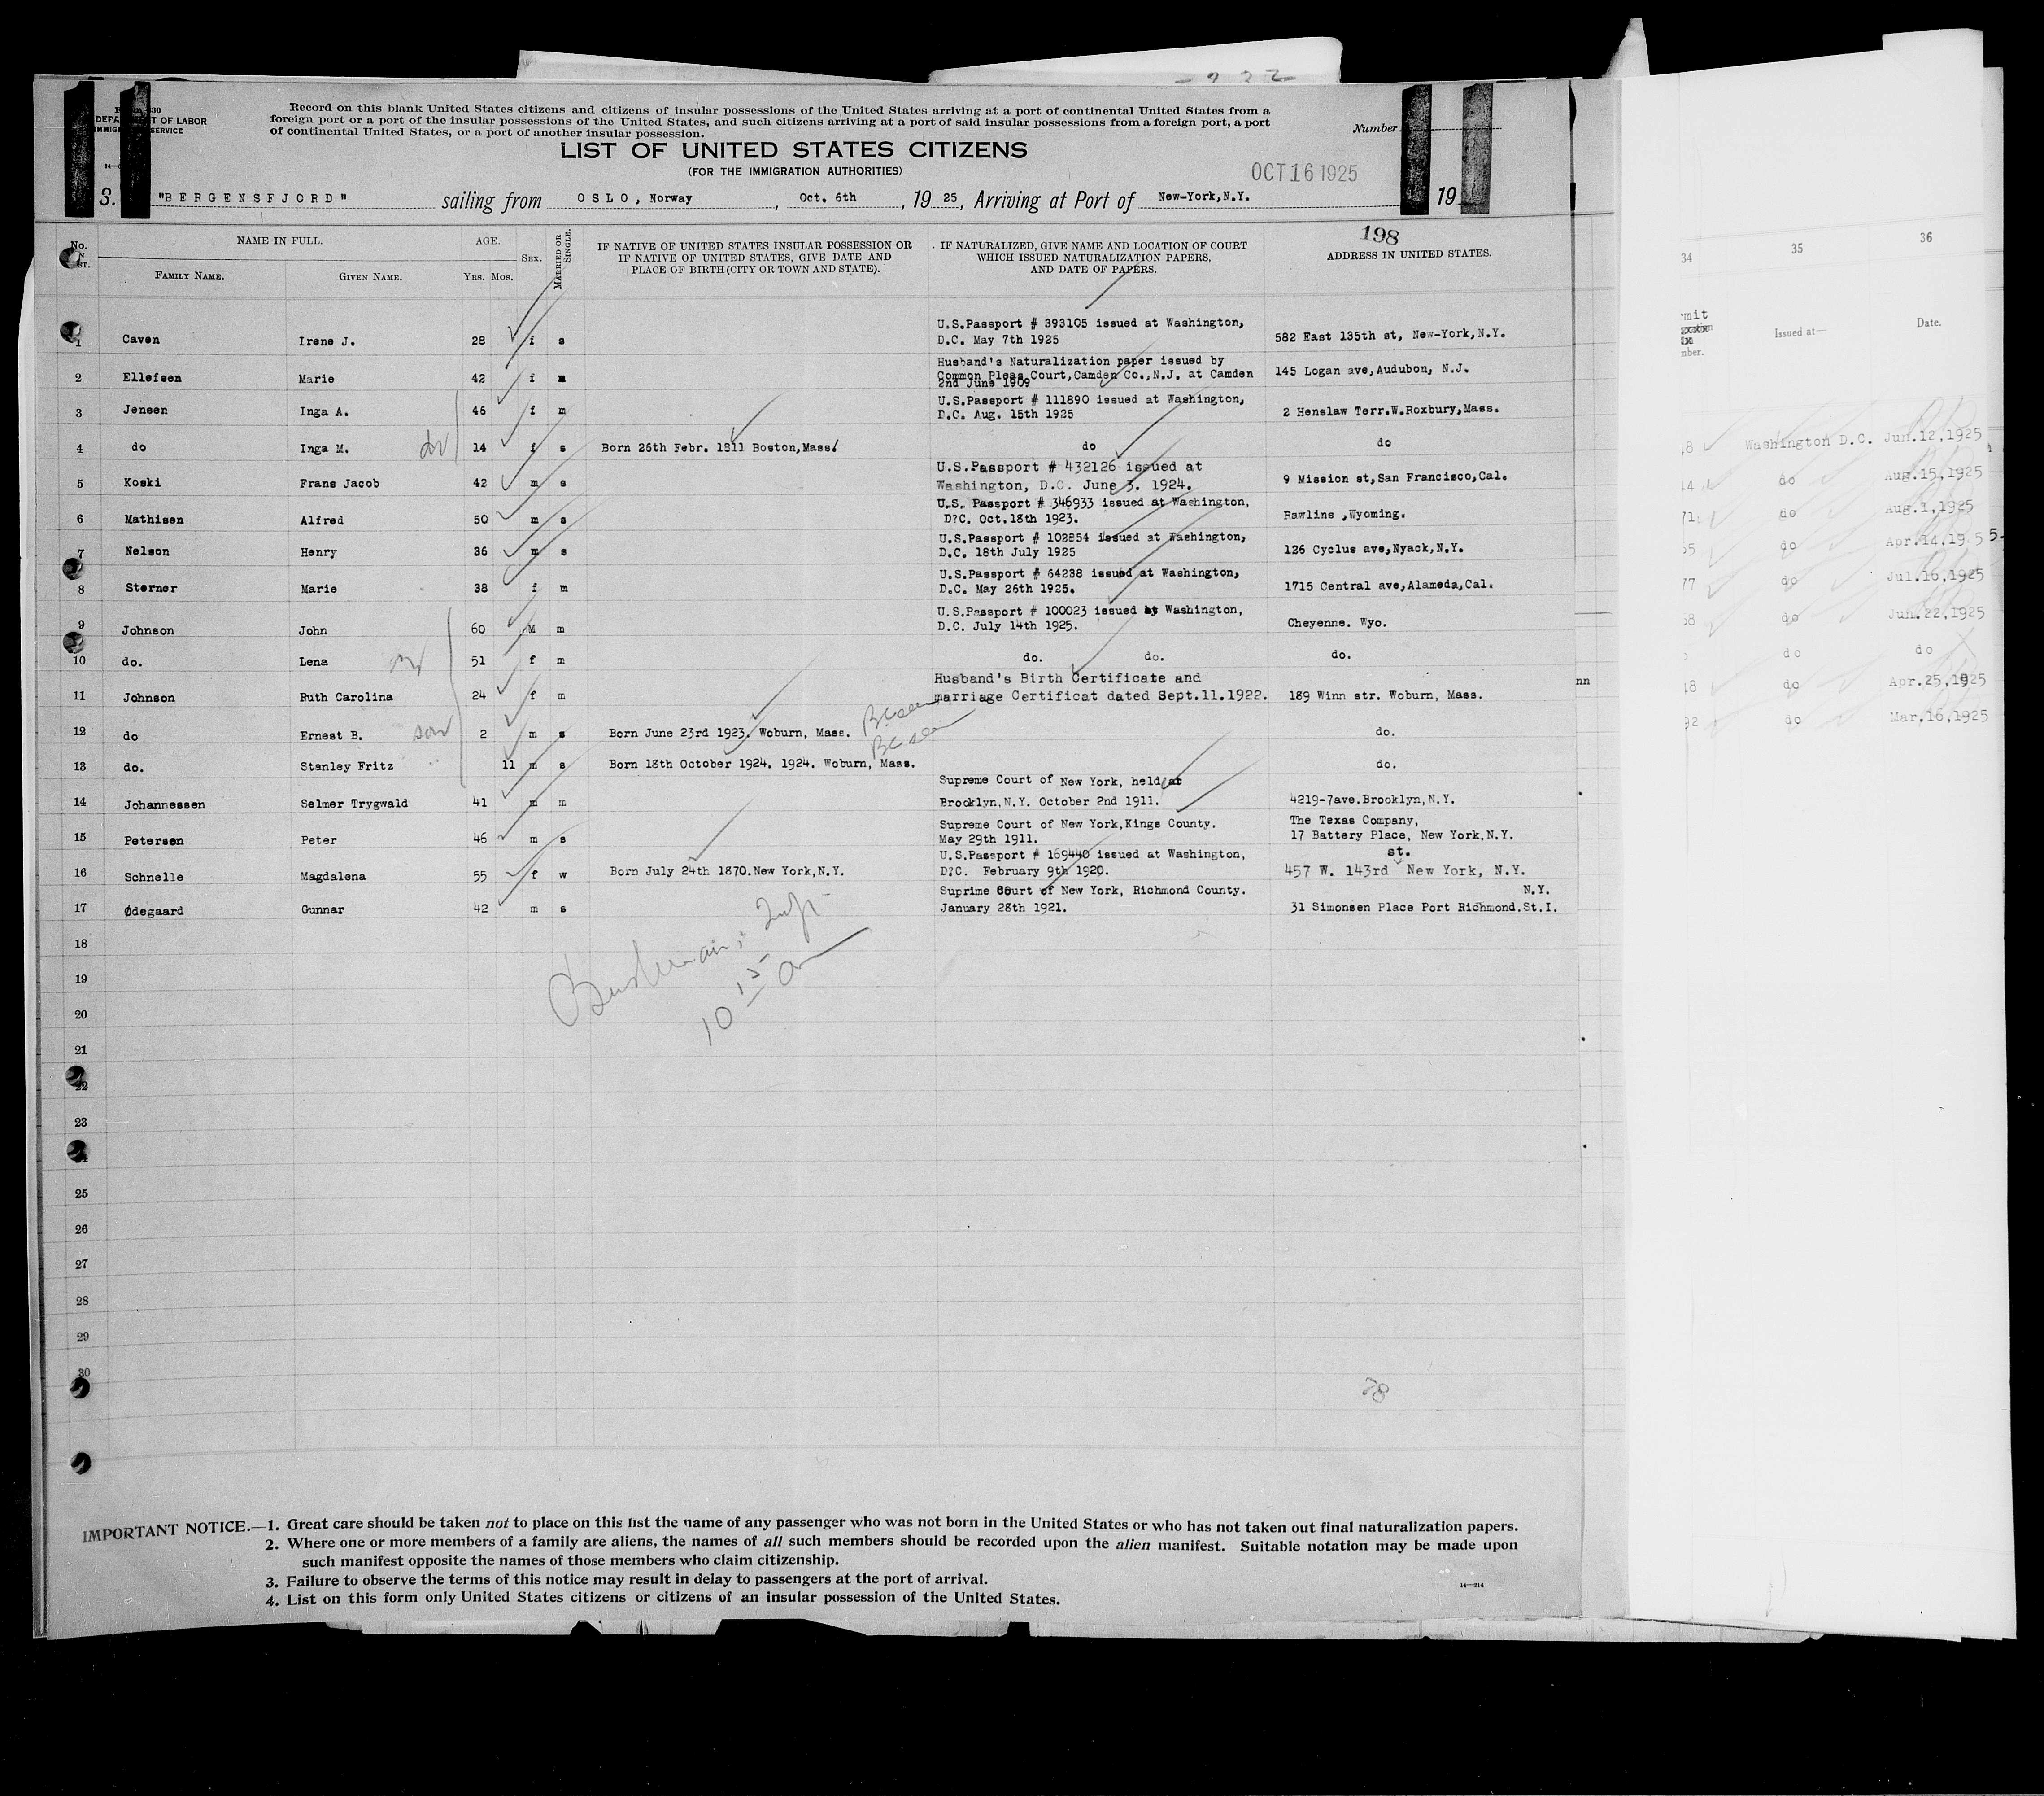 DEPARTMENT OF LABOR
Record on this blank United States citizens and citizens of insular possessions of the United States arriving at a port of continental United States from a
foreign port or a port of the insular possessions of the United States, and such citizens arriving at a port of said insular possessions from a foreign port, a port
of continental United States, or a port of another insular possession.
Number
LIST OF UNITED STATES CITIZENS
(FOR THE IMMIGRATION AUTHORITIES)
OCT 16 1925
S. "BERGENSFJORD" sailing from OSLO, Norway, Oct. 6th, 1925, Arriving at Port of New-York,N.Y. 19
198
No. NAME IN FULL. AGE. SEX. MARRIED OR SINGLE. IF NATIVE OF UNITED STATES INSULAR POSSESSION OR IF NATIVE OF UNITED STATES, GIVE DATE AND PLACE OF BIRTH (CITY OR TOWN AND STATE). IF NATURALIZED, GIVE NAME AND LOCATION OF COURT WHICH ISSUED NATURALIZATION PAPERS, AND DATE OF PAPERS. ADDRESS IN UNITED STATES.
FAMILY NAME. GIVEN NAME. YRS. MOS.
1 Caven Irene J. 28 f s U.S.Passport # 393105 issued at Washington, D.C. May 7th 1925 582 East 135th st, New-York,N.Y.
2 Ellefsen Marie 42 f m Husband's Naturalization paper issued by Common Pleas Court,Camden Co.,N.J. at Camden 2nd June 1909 145 Logan ave,Audubon, N.J.
3 Jensen Inga A. 46 f m U.S.Passport # 111890 issued at Washington, D.C. Aug. 15th 1925 2 Henslaw Terr.W.Roxbury,Mass.
4 do Inga M. 14 f s Born 26th Febr. 1911 Boston,Mass. do do
5 Koski Frans Jacob 42 m s U.S.Passport # 432126 issued at Washington, D.C. June 3. 1924. 9 Mission st,San Francisco,Cal.
6 Mathisen Alfred 50 m s U.S. Passport # 346933 issued at Washington, D?C. Oct.18th 1923. Rawlins ,Wyoming.
7 Nelson Henry 36 m s U.S.Passport # 102854 issued at Washington, D.C. 18th July 1925 126 Cyclus ave,Nyack,N.Y.
8 Sterner Marie 38 f m U.S.Passport # 64238 issued at Washington, D.C. May 26th 1925. 1715 Central ave,Alameda,Cal.
9 Johnson John 60 M m U.S.Passport # 100023 issued at Washington, D.C. July 14th 1925. Cheyenne. Wyo.
10 do. Lena 51 f m do. do. do.
11 Johnson Ruth Carolina 24 f m Husband's Birth Certificate and marriage Certificat dated Sept.11.1922. 189 Winn str. Woburn, Mass.
12 do Ernest B. son 2 m s Born June 23rd 1923. Woburn, Mass. BC seen do.
13 do. Stanley Fritz " 11 m s Born 18th October 1924. 1924. Woburn, Mass. BC seen do.
14 Johannessen Selmer Trygwald 41 m m Supreme Court of New York, held at Brooklyn,N.Y. October 2nd 1911. 4219-7ave.Brooklyn,N.Y.
15 Petersen Peter 46 m s Supreme Court of New York,Kings County. May 29th 1911. The Texas Company, 17 Battery Place, New York,N.Y.
16 Schnelle Magdalena 55 f w Born July 24th 1870.New York,N.Y. U.S.Passport # 169440 issued at Washington, D?C. February 9th 1920. 457 W. 143rd st. New York, N.Y.
17 Ødegaard Gunnar 42 m s Suprime Court of New York, Richmond County. January 28th 1921. 31 Simonsen Place Port Richmond.St.I. N.Y.
18
19
20
21
22
23
25
26
27
28
29
30
10 15 a
78
IMPORTANT NOTICE.—1. Great care should be taken not to place on this list the name of any passenger who was not born in the United States or who has not taken out final naturalization papers.
2. Where one or more members of a family are aliens, the names of all such members should be recorded upon the alien manifest. Suitable notation may be made upon
such manifest opposite the names of those members who claim citizenship.
3. Failure to observe the terms of this notice may result in delay to passengers at the port of arrival.
4. List on this form only United States citizens or citizens of an insular possession of the United States.
14—214
34 35 36
Issued at— Date.
Washington D.C. Jun.12,1925
do Aug.15,1925
do Aug.1,1925
do Apr.14,19 5 5.
do Jul.16,1925
do Jun.22,1925
do do
do Apr.25,1925
do Mar.16,1925
nn